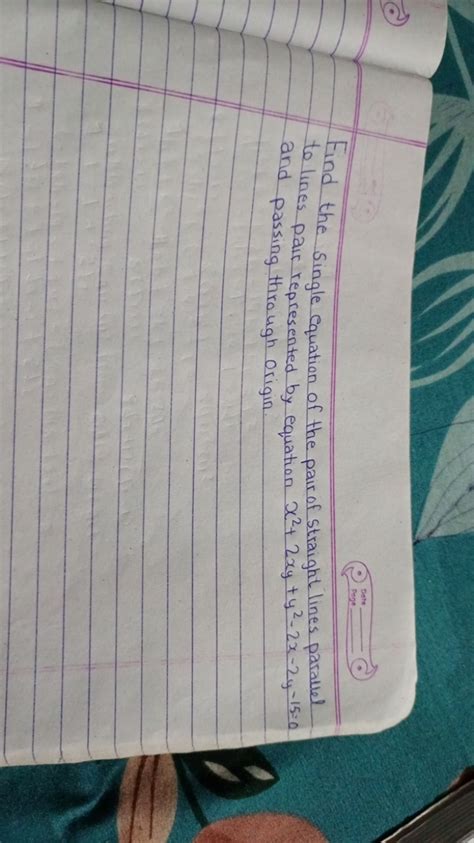 Date
Page
Find the single equation of the pair of straight lines parallel
to lines pair represented by equation x²+ 2xy + y² - 2x - 2y - 15=0
and passing through Origin.